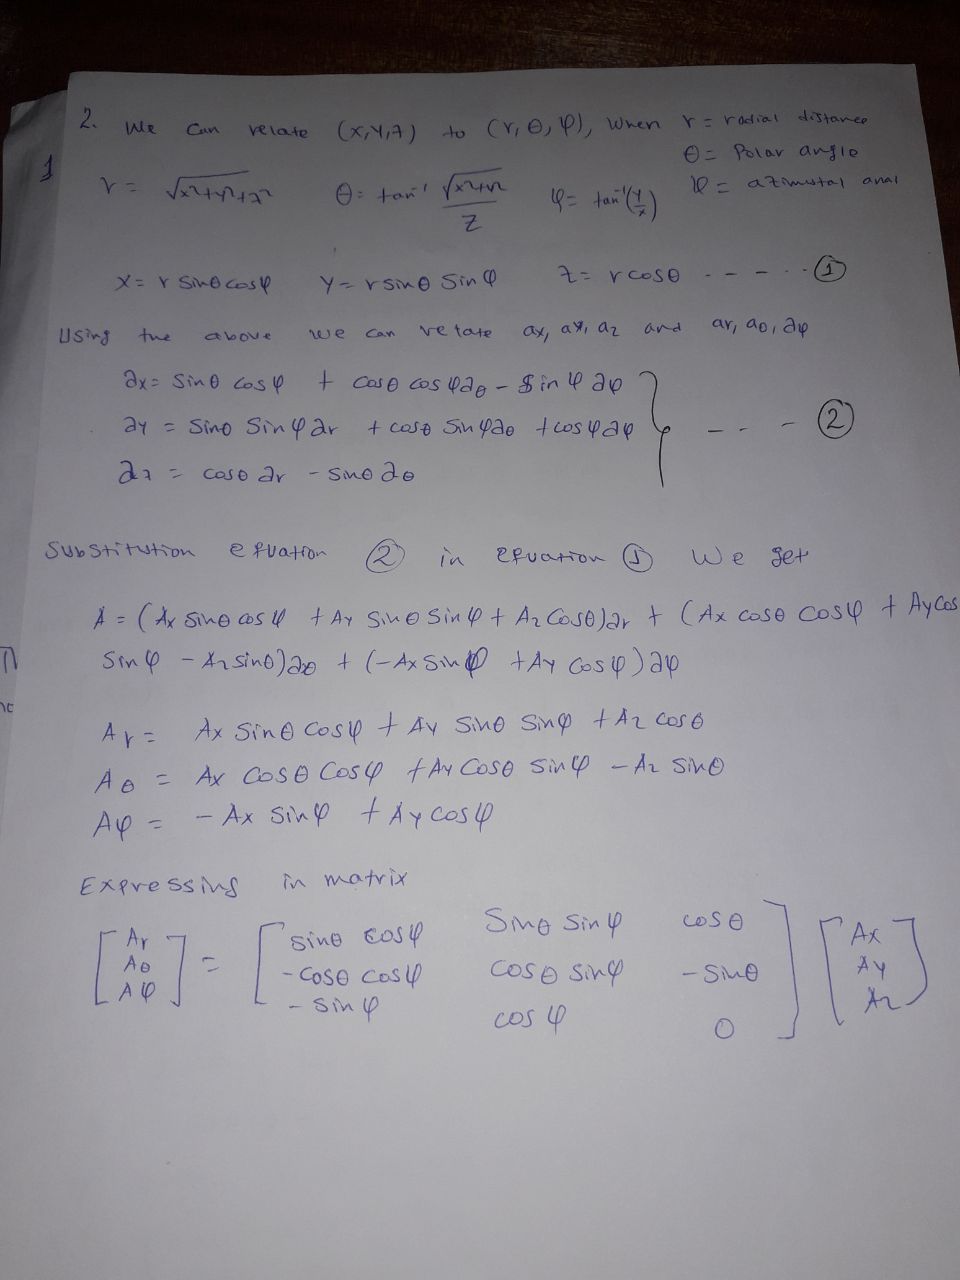 2. We can relate (x,y,z) to (r, θ, φ), when r = radial distance
θ = Polar angle
1
r = √x²+y²+z² θ = tan⁻¹ √x²+y² / z φ = tan⁻¹(y/x) φ = azimutal anal
x = r sinθ cosφ y = r sinθ sinφ z = r cosθ - - - - ①
Using the above we can relate ax, ay, az and ar, aθ, aφ
ax = sinθ cosφ + cosθ cosφ aθ - sinφ aφ
ay = sinθ sinφ ar + cosθ sinφ aθ + cosφ aφ - - - ②
az = cosθ ar - sinθ aθ
Substitution equation ② in equation ① We get
A = (Ax sinθ cosφ + Ay sinθ sinφ + Az cosθ)ar + (Ax cosθ cosφ + Ay cos
sinφ - Az sinθ)aθ + (-Ax sinφ + Ay cosφ)aφ
Ar = Ax sinθ cosφ + Ay sinθ sinφ + Az cosθ
Aθ = Ax cosθ cosφ + Ay cosθ sinφ - Az sinθ
Aφ = - Ax sinφ + Ay cosφ
Expressing in matrix
[Ar] = [sinθ cosφ sinθ sinφ cosθ] [Ax]
[Aθ] [-cosθ cosφ cosθ sinφ - sinθ] [Ay]
[Aφ] [- sinφ cosφ 0] [Az]